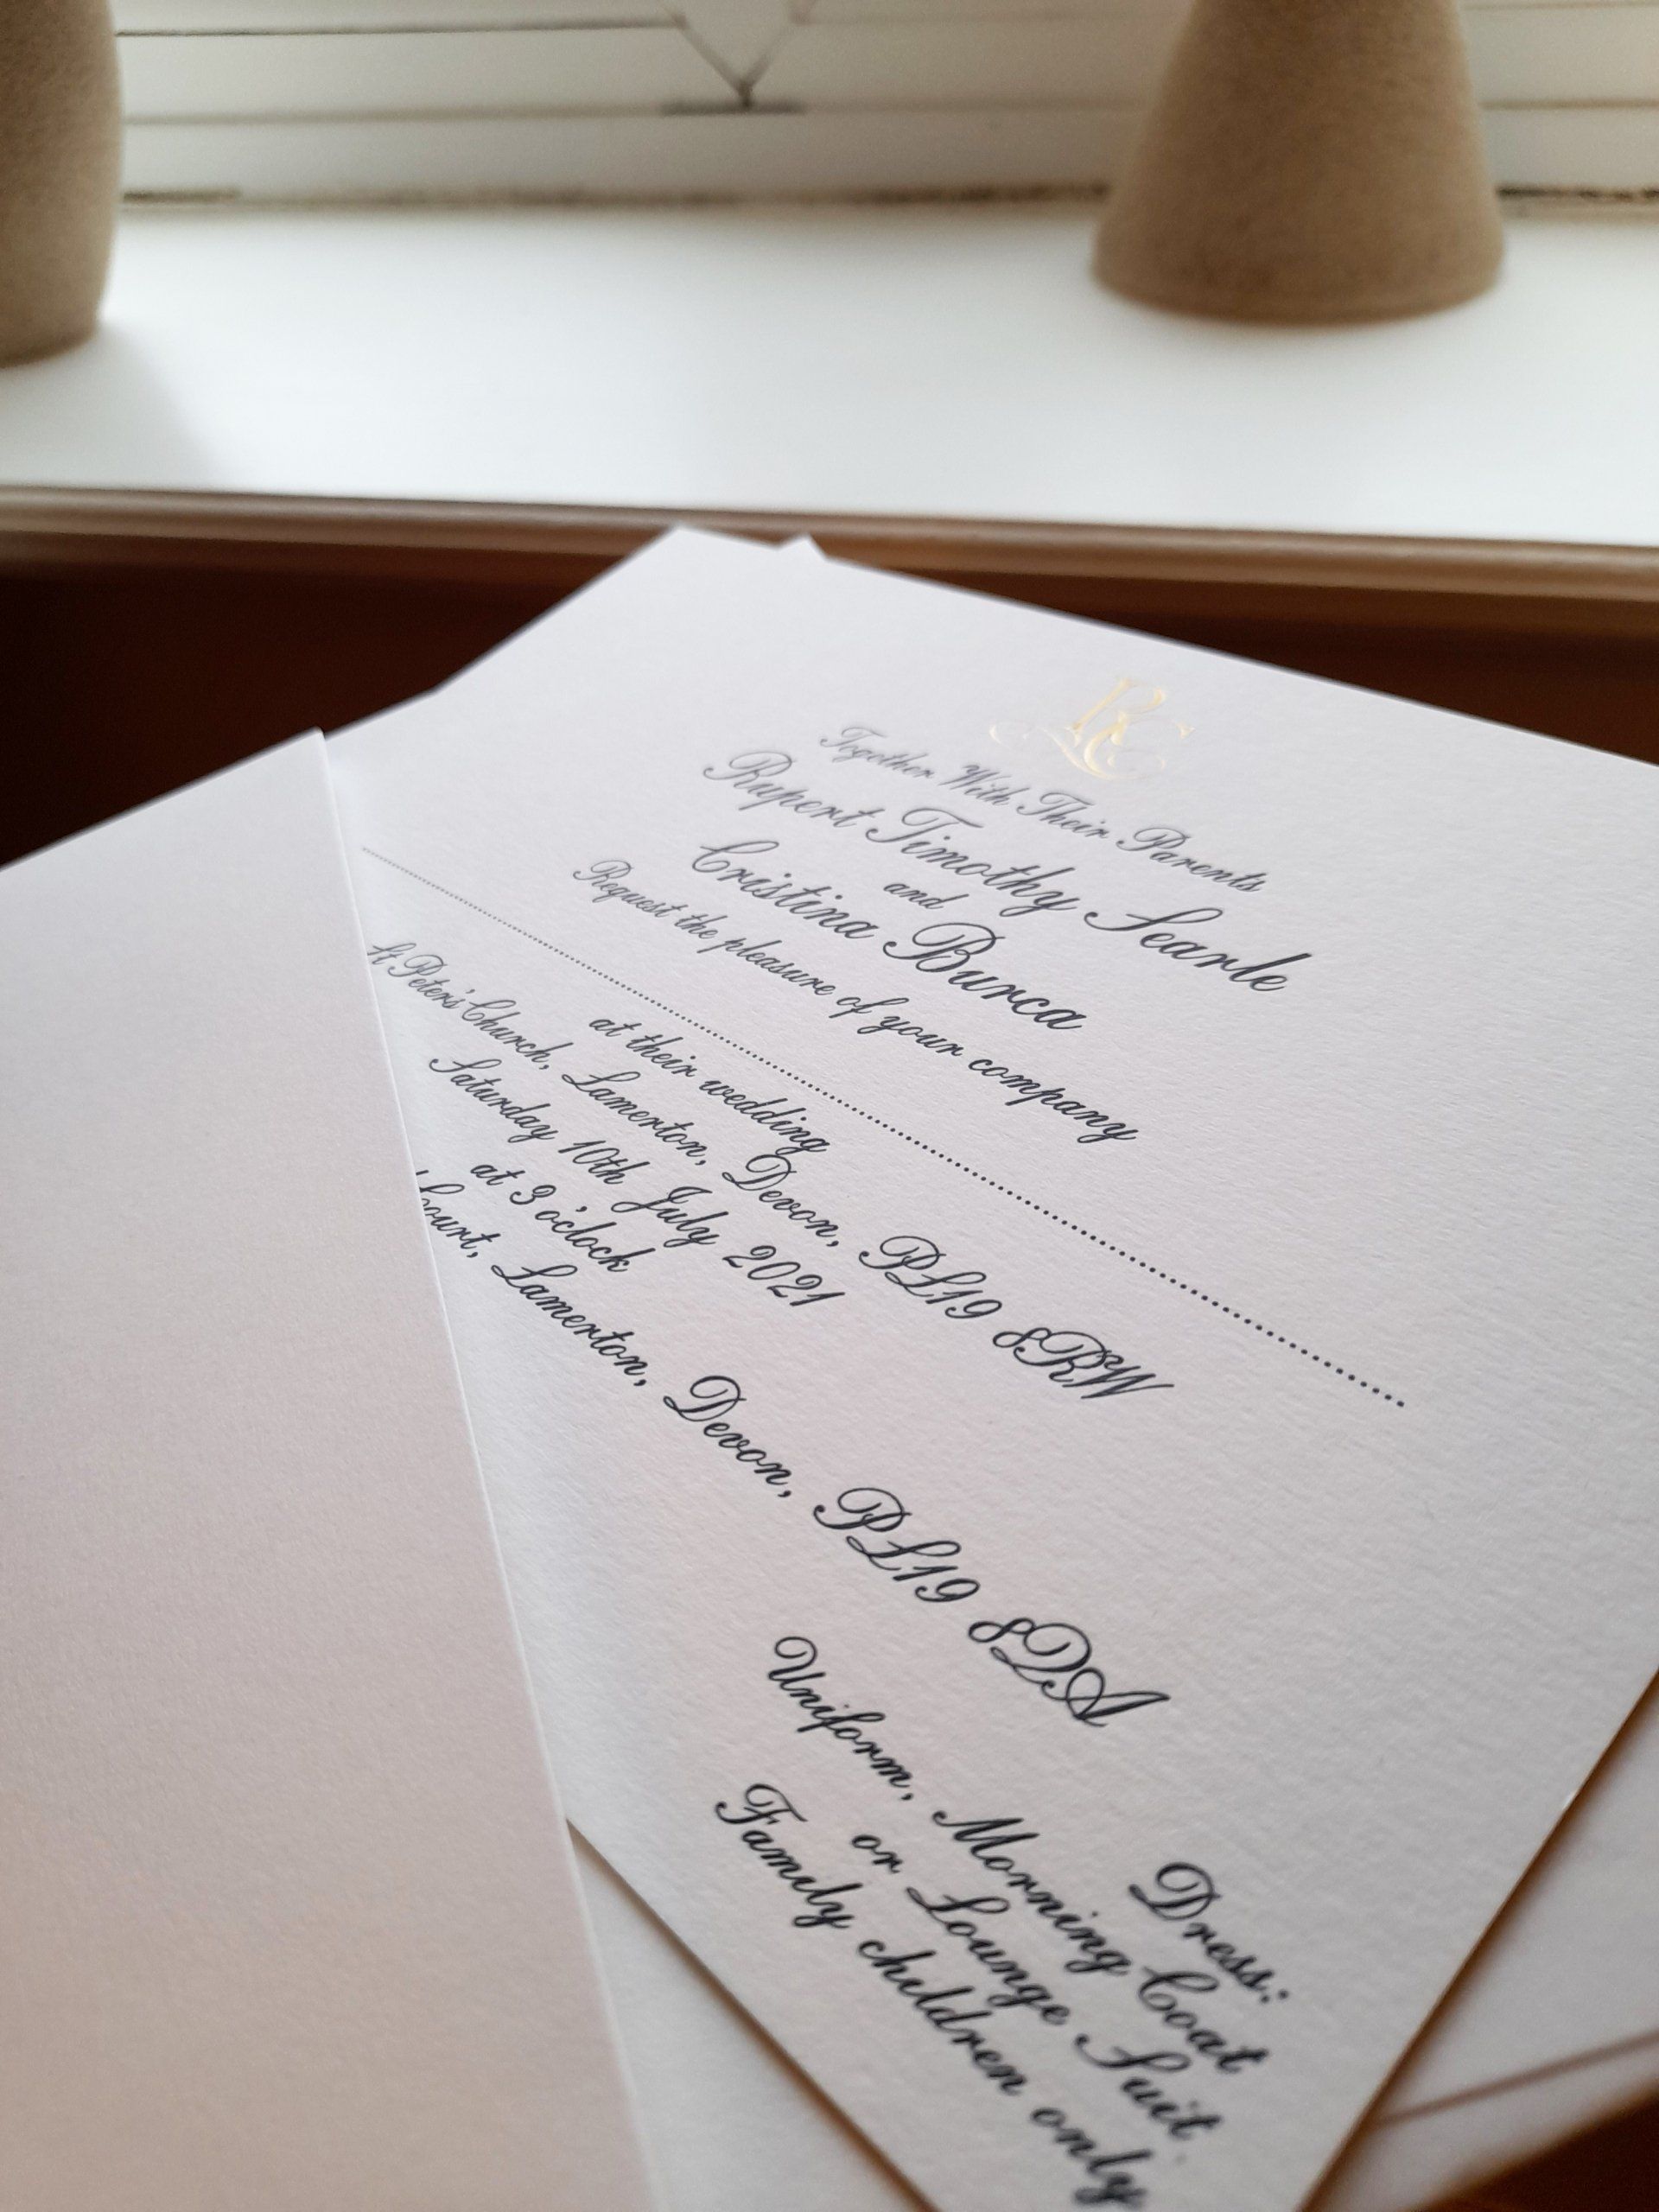 RC
Together With Their Parents
Rupert Timothy Searle
and
Cristina Burca
Request the pleasure of your company
at their wedding
St Peters' Church, Lamerton, Devon, PL19 8RW
Saturday 10th July 2021
at 3 o'clock
Court, Lamerton, Devon, PL19 8QA
Dress:
Uniform, Morning Coat
or Lounge Suit
Family children only